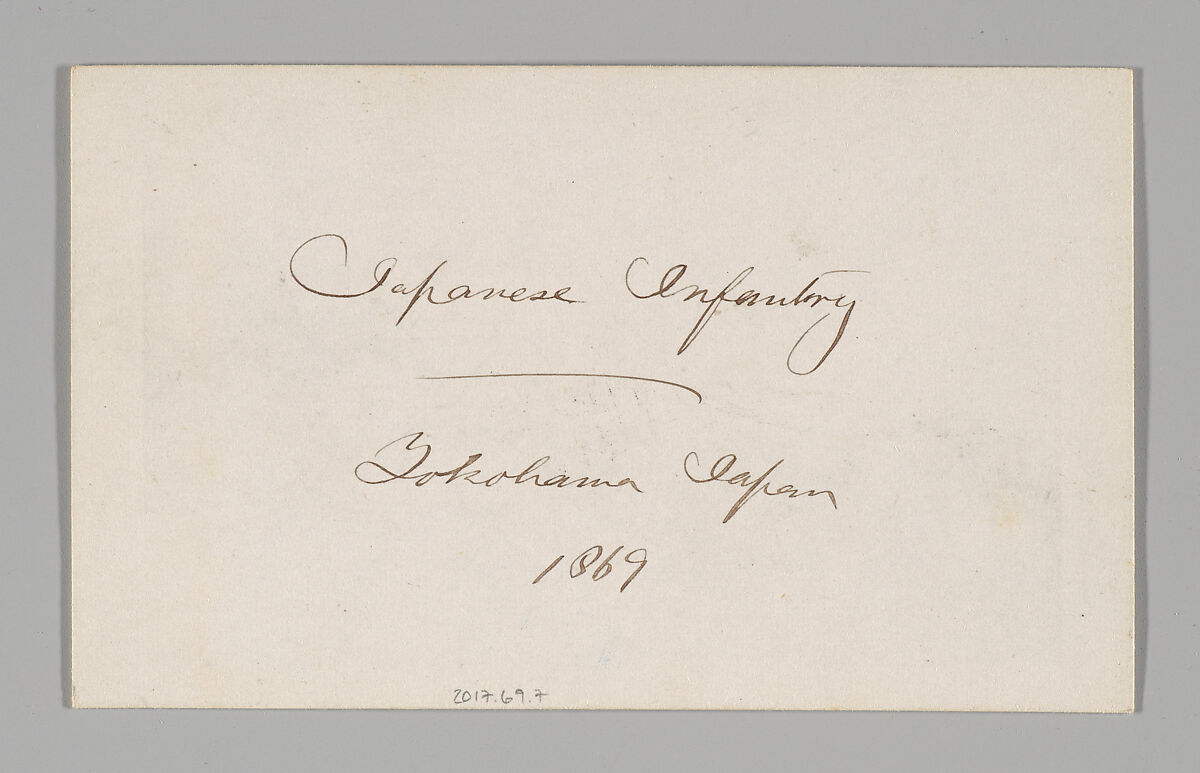 Japanese Infantry
Yokohama Japan
1869
2017.69.7